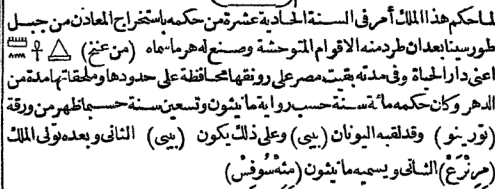 لما حكم هذا الملك أمر فى السنة الحادية عشرة من حكمه باستخراج المعادن من جبل
طورسينا بعد ان طرد منه الاقوام المتوحشة وصنع له هرما سماه (من عنخ)
اعنى دار الحياة وفى مدته بقيت مصر على رونقها محافظة على حدودها وملحقاتها مدة من
الدهر وكان حكمه مائة سنة حسب رواية مانيثون وتسعين سنة حسبما ظهر من ورقة
(تورينو) وقد لقبه اليونان (بيبى) وعلى ذلك يكون (بيبى) الثانى وبعده تولى الملك
(مرنرع) الثانى ويسميه مانيثون (منثسوفس)